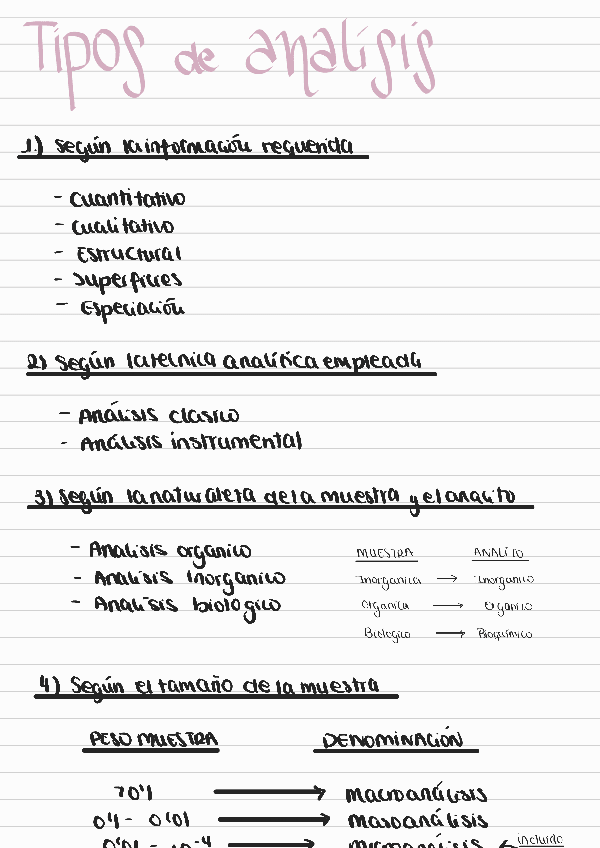 Tipos de analisis
1.) Según la información requerida
- Cuantitativo
- Cualitativo
- Estructural
- Superficies
- Especiación
2) Según la técnica analítica empleada
- Análisis clasico
- Análisis instrumental
3) Según la naturaleza de la muestra y el analito
- Analisis organico
- Analisis Inorganico
- Analisis biologico
MUESTRA ANALITO
Inorganica → Inorganico
Organica → Organico
Biologico → Bioquimico
4) Según el tamaño de la muestra
PESO MUESTRA DENOMINACIÓN
>0'1 → macroanálisis
0'1 - 0'01 → masoanálisis
0'01 - 10⁻⁴ → microanálisis ← incluido